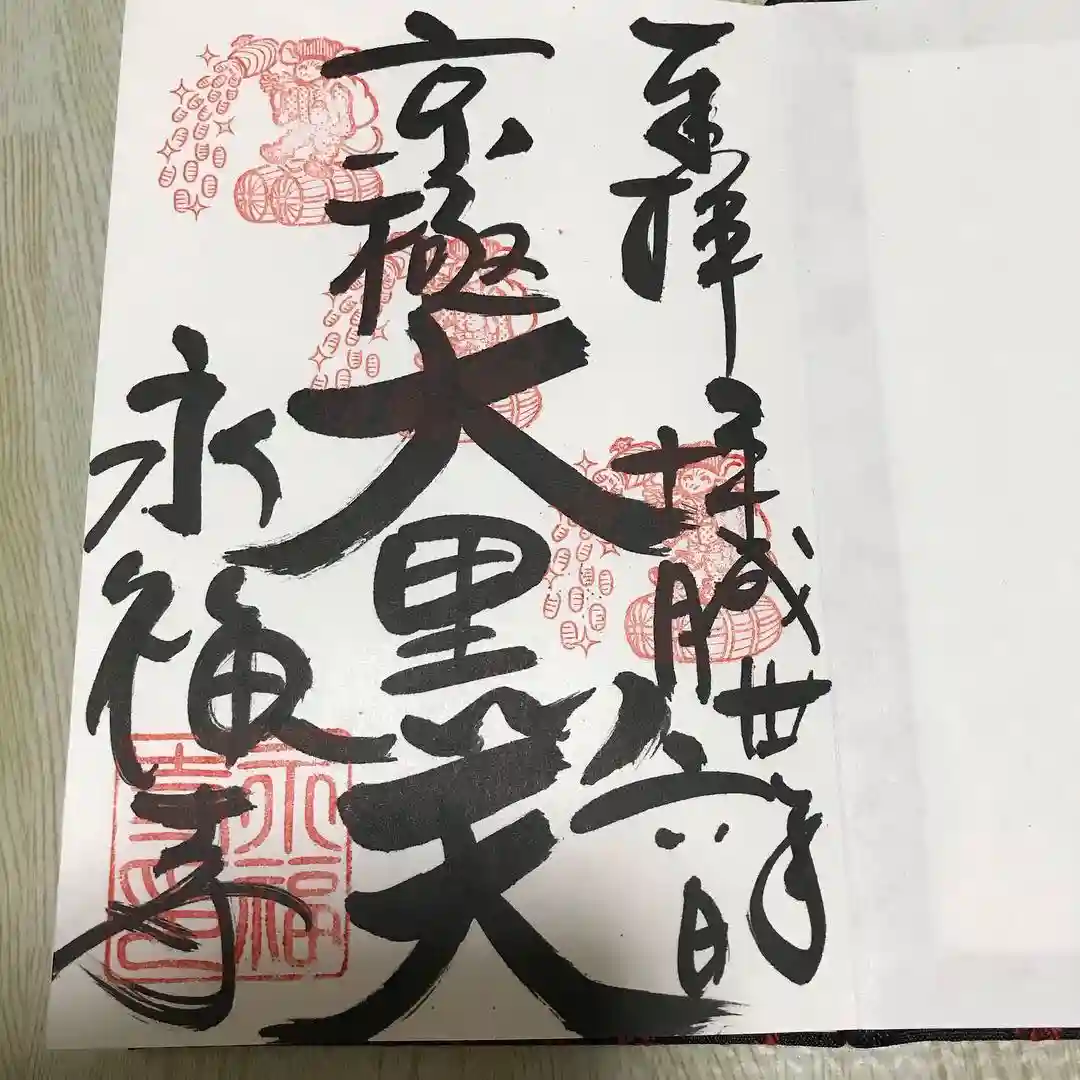 奉拝
平成丗年
十月
日
京極
大黒天
永福寺
永福
寺印